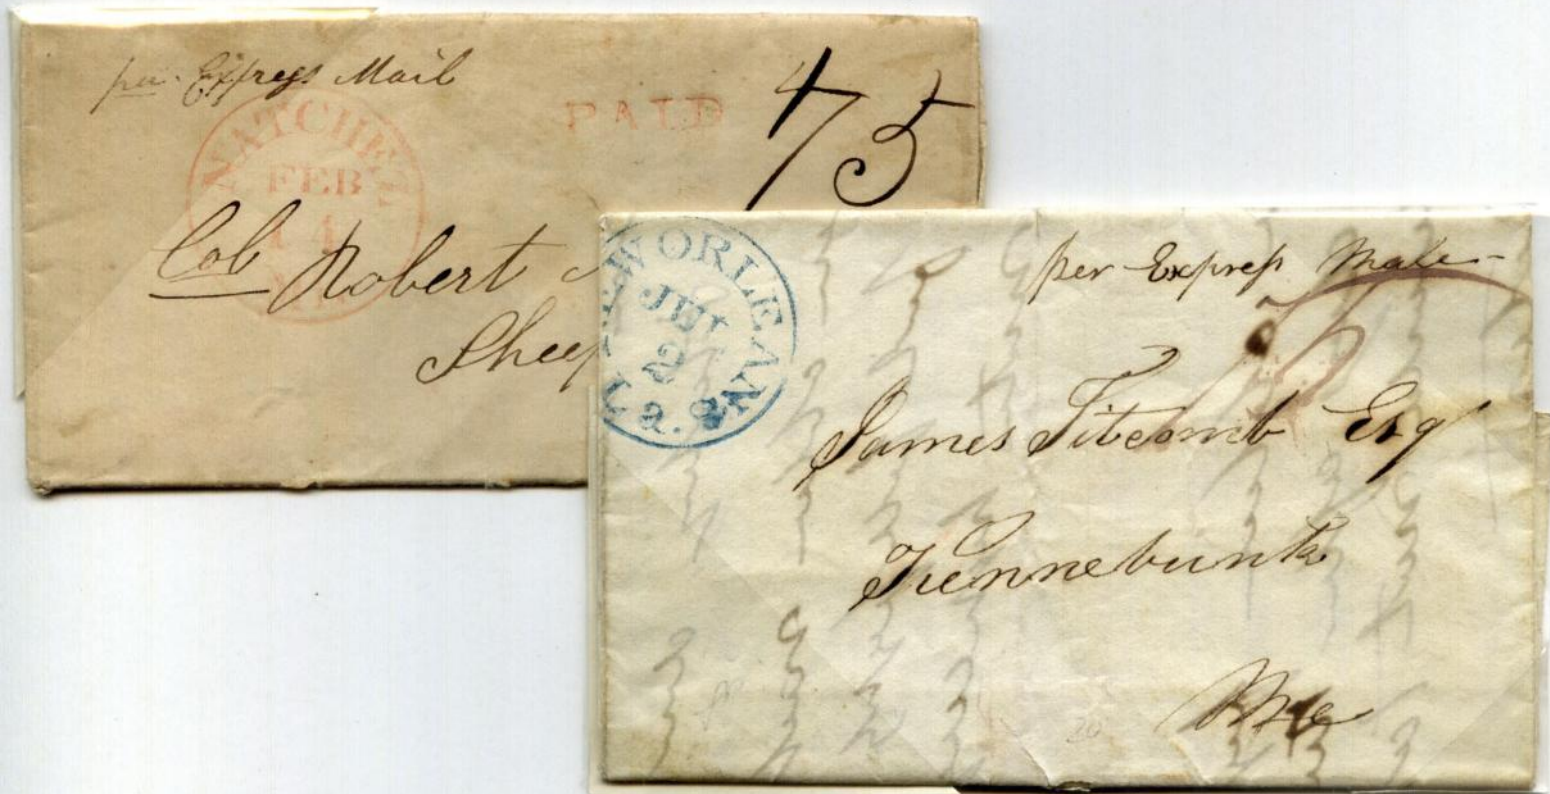 per Express Mail
NATCHEZ
FEB
14
PAID
75
Col Robert
Sheep
NEW ORLEANS
JUL
2
La.
per Express Male
75
James Titcomb Esq
Kennebunk
Me